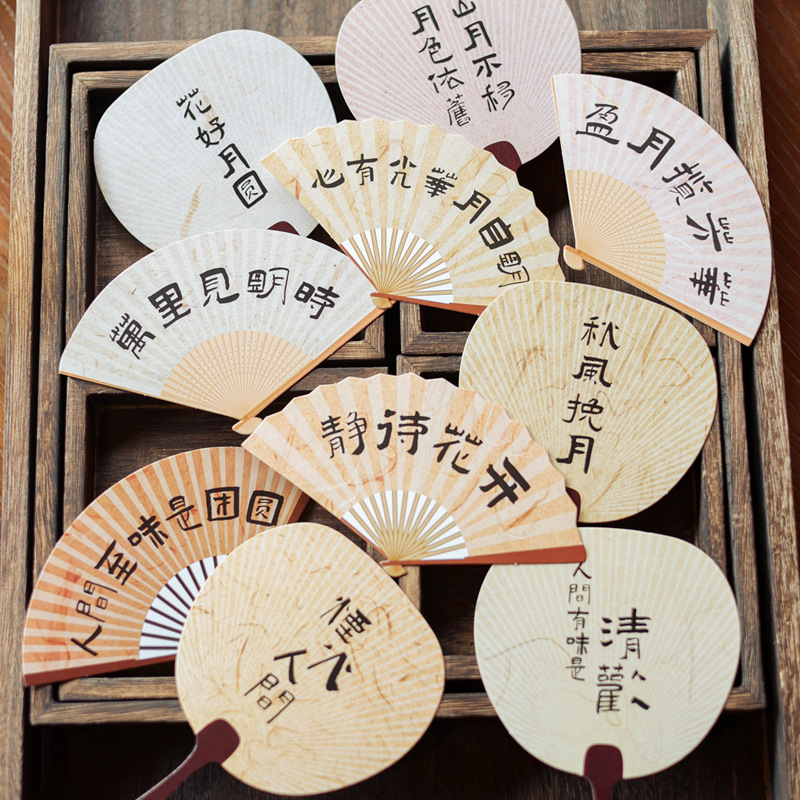 花好月圆
山月不移
月色依舊
心有光華月自明
盈月芳華
萬里見明時
秋風挽月
静待花开
人間至味是团圆
煙火
人間
人間有味是
清歡